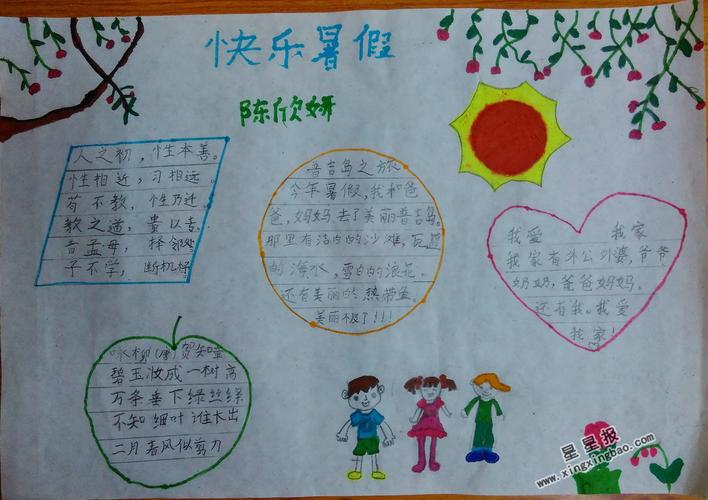 快乐暑假
陈欣妍
人之初，性本善。
性相近，习相远。
苟不教，性乃迁。
教之道，贵以专。
昔孟母，择邻处
子不学，断机杼
普吉岛之旅
今年暑假,我和爸
爸,妈妈去了美丽普吉岛。
那里有洁白的沙滩,瓦蓝
的海水,雪白的浪花。
还有美丽的热带鱼。
美丽极了!!!
我爱 我家
我家有外公外婆,爷爷
奶奶,爸爸妈妈。
还有我。我爱
我家!
咏柳(唐)贺知章
碧玉妆成一树高
万条垂下绿丝绦
不知细叶谁才出
二月春风似剪刀
星星报
www.xingxingbao.com